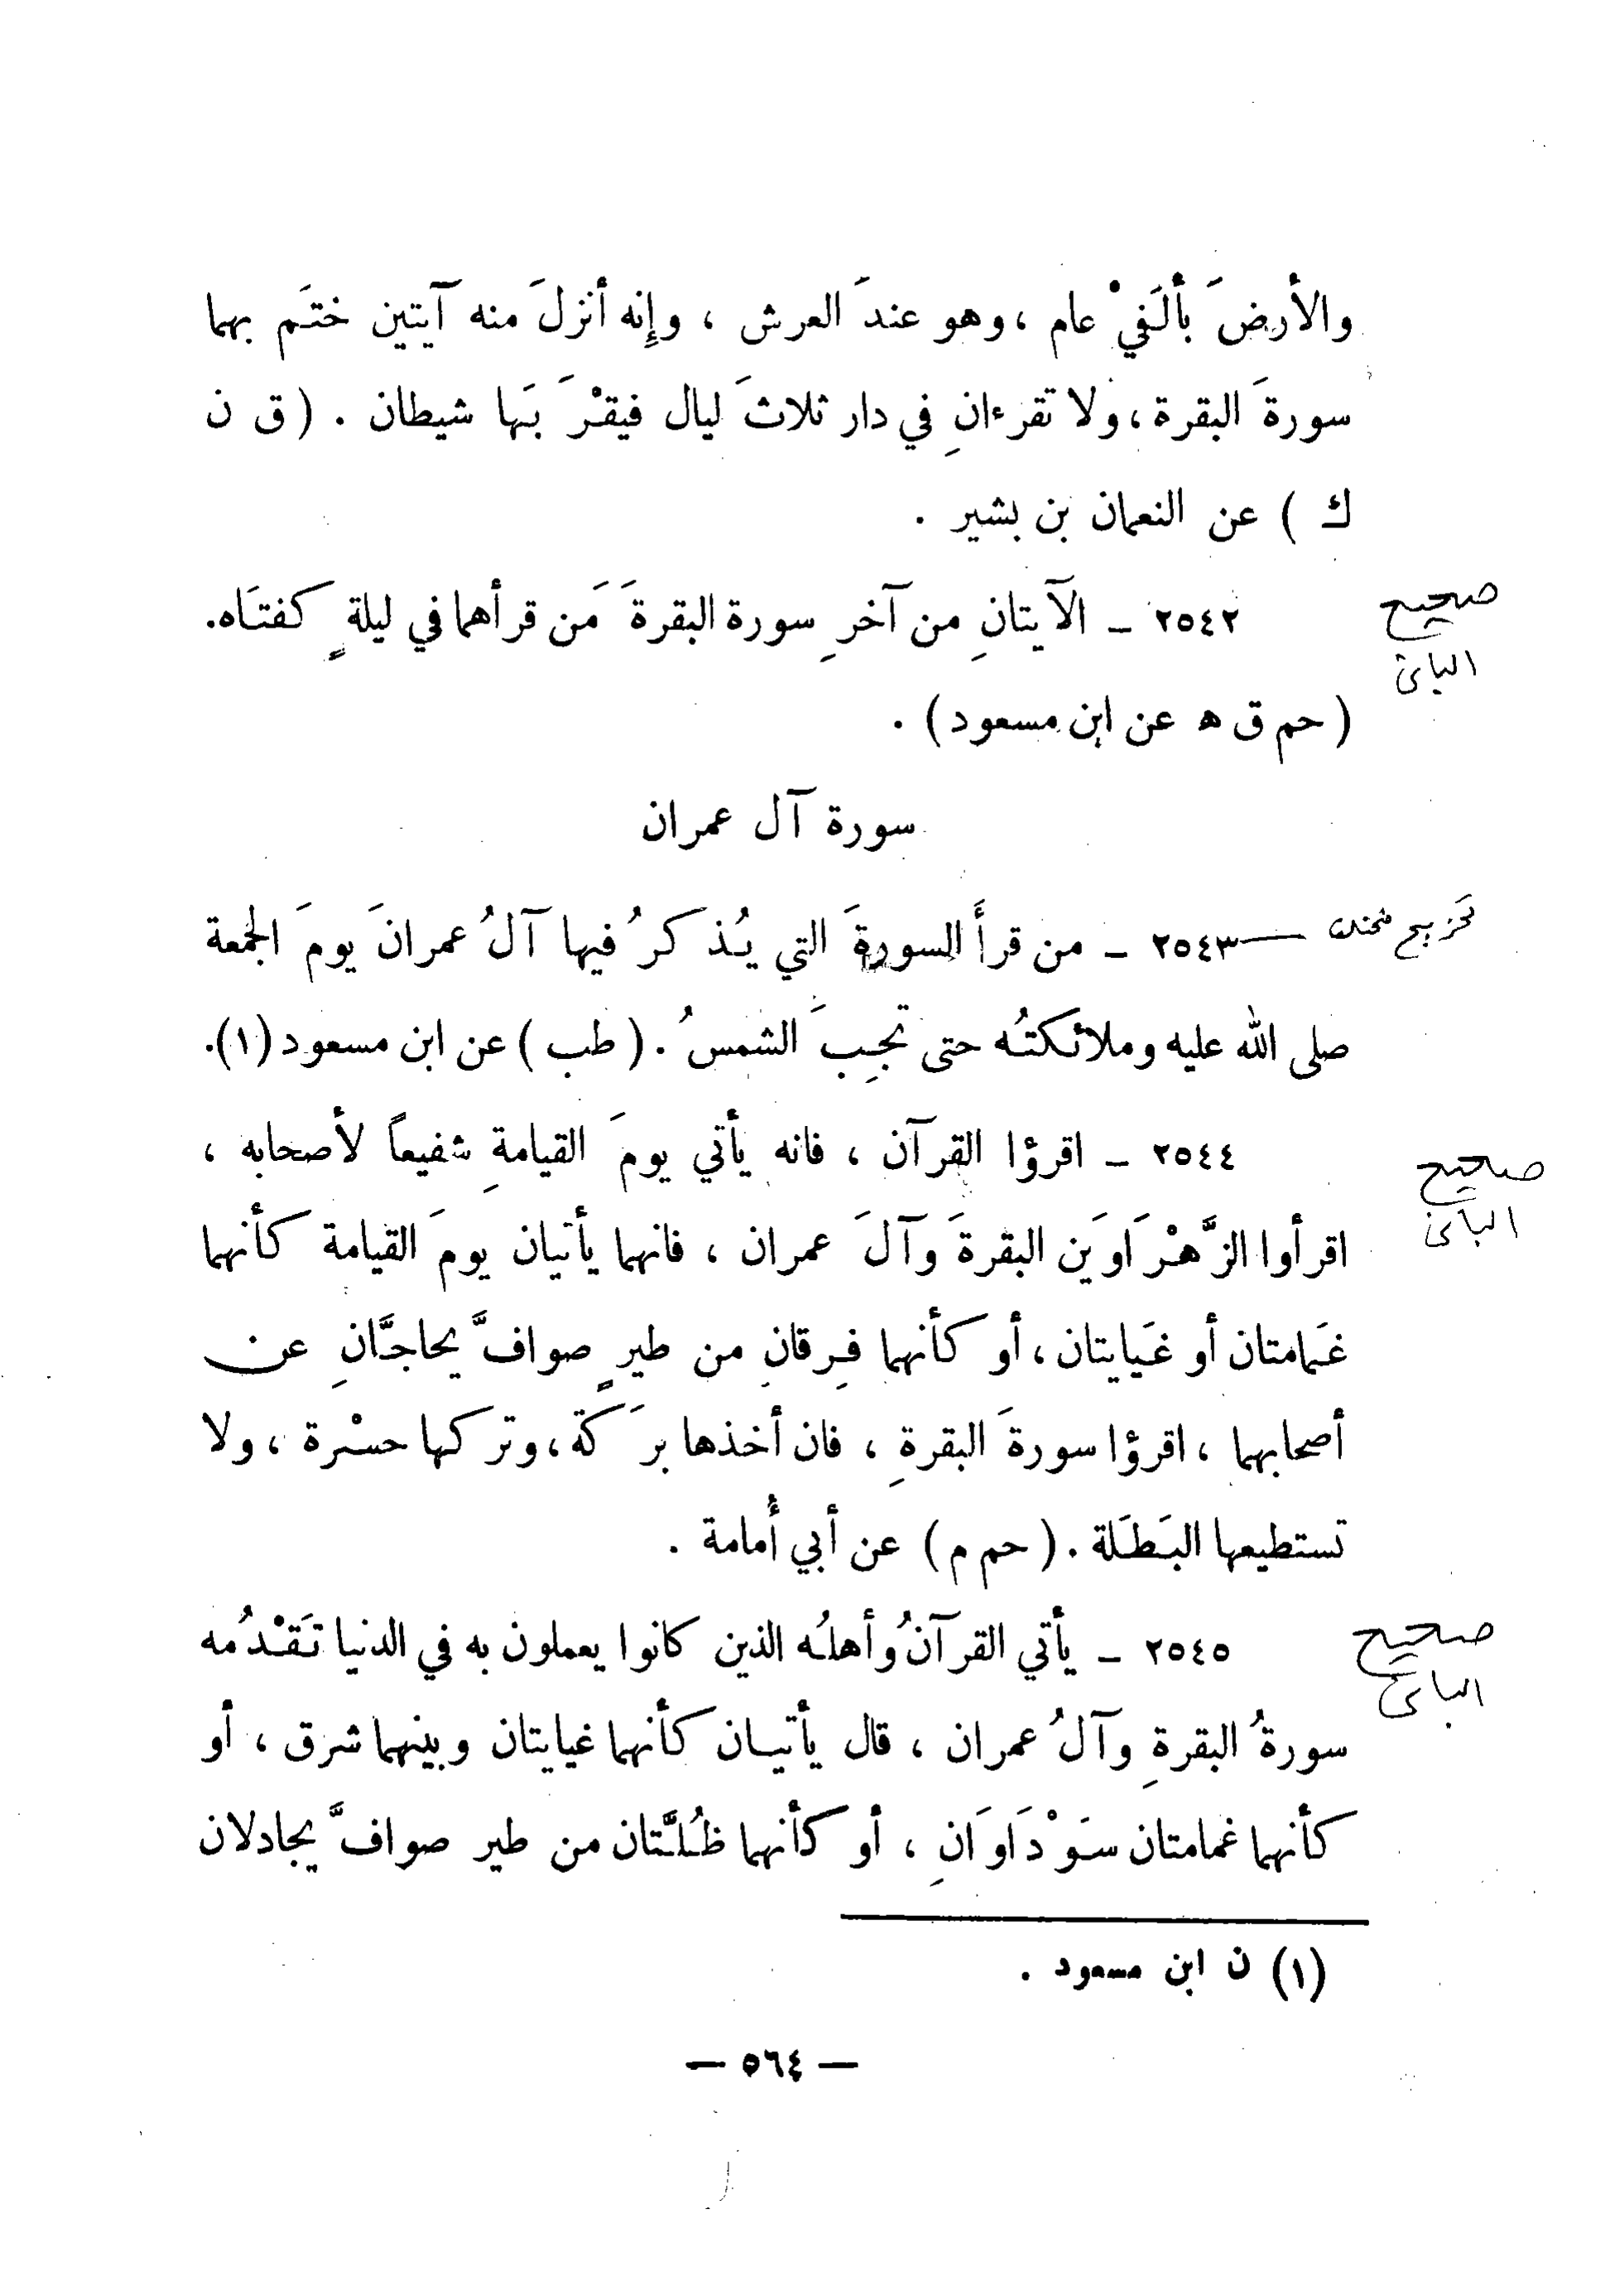 والأرضَ بألَفيْ عام ، وهو عندَ العرش ، وإِنه أنزلَ منه آيتين ختَم بهما
سورةَ البقرة ، ولا تقرءانِ في دار ثلاثَ ليال فيقْرَبَها شيطان . ( ق ن
ك ) عن النعمان بن بشير .
صحيح
٢٥٤٢ – الآيتانِ من آخرِ سورة البقرةَ مَن قرأهما في ليلةٍ كفتَاه .
( حم ق ه عن ابن مسعود ) .
سورة آل عمران
٢٥٤٣ – من قرأَ السورةَ التي يُذكرُ فيها آلُ عمرانَ يومَ الجمعة
صلى الله عليه وملائكتُه حتى تجِبَ الشمسُ . ( طب ) عن ابن مسعود (١) .
٢٥٤٤ – اقرؤا القرآن ، فانه يأتي يومَ القيامةِ شفيعاً لأصحابه ،
صحيح
اقرأوا الزَّهْرَاوَين البقرةَ وآلَ عمران ، فانهما يأتيان يومَ القيامة كأنهما
غَمامتان أو غَيايتان ، أو كأنهما فِرقانِ من طيرٍ صوافَّ يحاجَّانِ عن
أصحابهما ، اقرؤا سورةَ البقرةِ ، فان أخذها برَكة ، وتركها حسْرة ، ولا
تستطيعها البَطَلة . ( حم م ) عن أبي أُمامة .
صحيح
٢٥٤٥ – يأتي القرآنُ وأهلُه الذين كانوا يعملون به في الدنيا تَقْدُمه
سورةُ البقرةِ وآلُ عمران ، قال يأتيان كأنهما غيايتان وبينهما شرق ، أو
كأنهما غمامتان سَوْدَاوَانِ ، أو كأنهما ظُلَّتان من طير صوافَّ يجادلان
(١) ن ابن مسعود .
— ٥٦٤ —